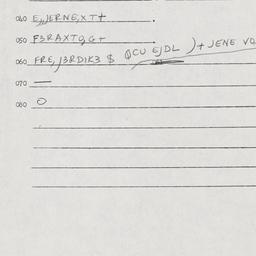 040 E,,JERNE,XT+ .
050 F3RAXTQ,G+
060 FRE,J3RDIK3 $ QCU EJDL )+ JENE VQ
070 —
080 O